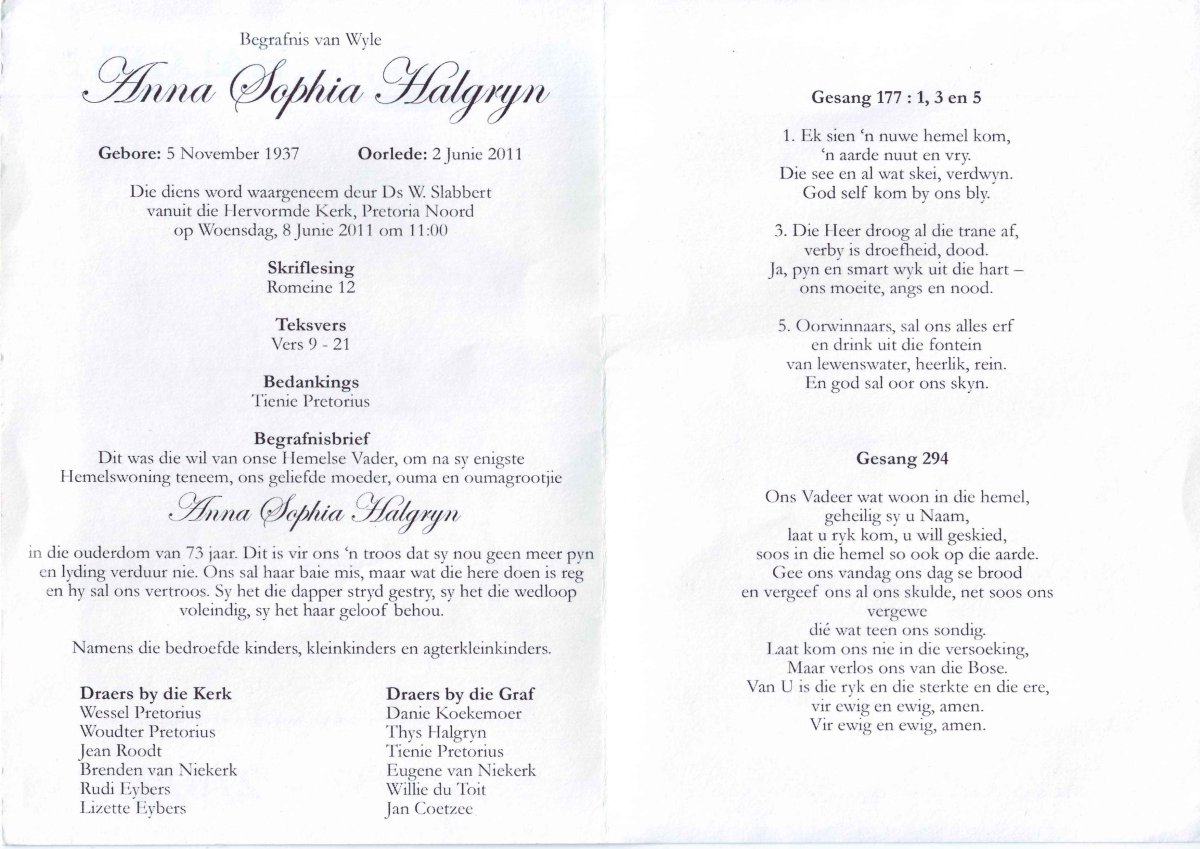 Begrafnis van Wyle
Anna Sophia Halgryn
Gebore: 5 November 1937 Oorlede: 2 Junie 2011
Die diens word waargeneem deur Ds W. Slabbert
vanuit die Hervormde Kerk, Pretoria Noord
op Woensdag, 8 Junie 2011 om 11:00
Skriflesing
Romeine 12
Teksvers
Vers 9 - 21
Bedankings
Tienie Pretorius
Begrafnisbrief
Dit was die wil van onse Hemelse Vader, om na sy enigste
Hemelswoning teneem, ons geliefde moeder, ouma en oumagrootjie
Anna Sophia Halgryn
in die ouderdom van 73 jaar. Dit is vir ons ‘n troos dat sy nou geen meer pyn
en lyding verduur nie. Ons sal haar baie mis, maar wat die here doen is reg
en hy sal ons vertroos. Sy het die dapper stryd gestry, sy het die wedloop
voleindig, sy het haar geloof behou.
Namens die bedroefde kinders, kleinkinders en agterkleinkinders.
Draers by die Kerk
Wessel Pretorius
Woudter Pretorius
Jean Roodt
Brenden van Niekerk
Rudi Eybers
Lizette Eybers
Draers by die Graf
Danie Koekemoer
Thys Halgryn
Tienie Pretorius
Eugene van Niekerk
Willie du Toit
Jan Coetzee
Gesang 177 : 1, 3 en 5
1. Ek sien ‘n nuwe hemel kom,
‘n aarde nuut en vry.
Die see en al wat skei, verdwyn.
God self kom by ons bly.
3. Die Heer droog al die trane af,
verby is droefheid, dood.
Ja, pyn en smart wyk uit die hart –
ons moeite, angs en nood.
5. Oorwinnaars, sal ons alles erf
en drink uit die fontein
van lewenswater, heerlik, rein.
En god sal oor ons skyn.
Gesang 294
Ons Vadeer wat woon in die hemel,
geheilig sy u Naam,
laat u ryk kom, u will geskied,
soos in die hemel so ook op die aarde.
Gee ons vandag ons dag se brood
en vergeef ons al ons skulde, net soos ons
vergewe
dié wat teen ons sondig.
Laat kom ons nie in die versoeking,
Maar verlos ons van die Bose.
Van U is die ryk en die sterkte en die ere,
vir ewig en ewig, amen.
Vir ewig en ewig, amen.